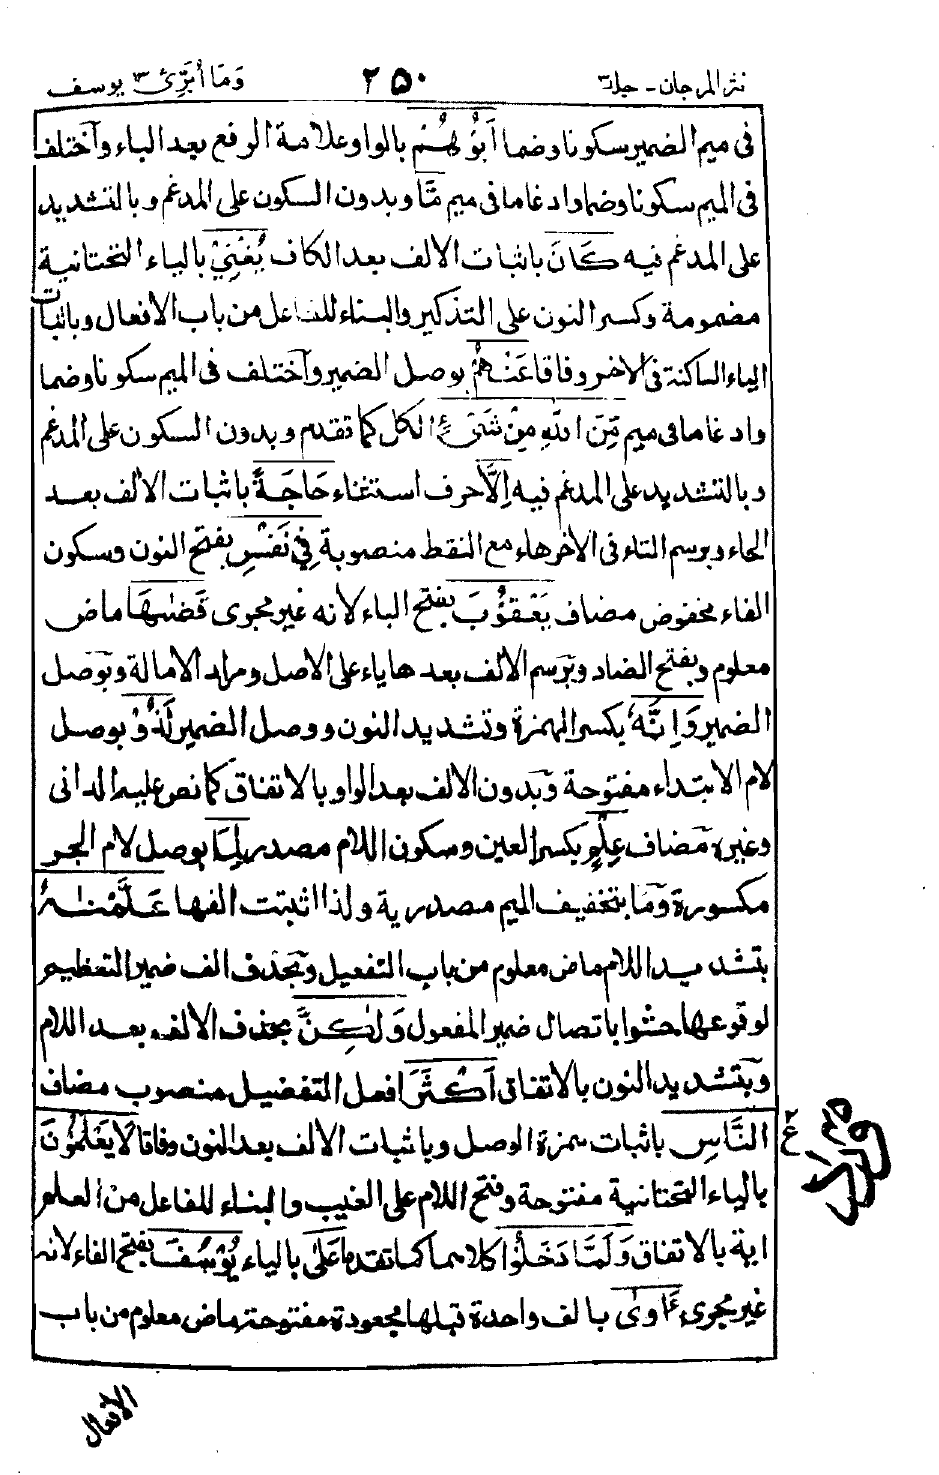 نثر المرجان - جلد ٣ ٢٥٠ وَمَا أُبَرِّئُ ١٣ يوسف
فى ميم الضمير سكونا وضما أَبُوْهُمْ بالواو علامة الرفع بعد الباء وآختلف
فى الميم سكونا وضما وادغاما فى ميم مَّا وبدون السكون على المدغم وبالتشديد
على المدغم فيه كَانَ باثبات الالف بعد الكاف يُغْنِيْ بالياء التحتانية
مضمومة وكسر النون على التذكير والبناء للفاعل من باب الافعال وباثبات
الياء الساكنة فى الاخر وفاقا عَنْهُمْ بوصل الضمير وآختلف فى الميم سكونا وضما
وادغاما فى ميم مِّنَ اللّٰهِ مِنْ شَيْءٍ الكل كما تقدم وبدون السكون على المدغم
وبالتشديد على المدغم فيه اِلَّا حرف استثناء حَاجَةً باثبات الالف بعد
الحاء وبرسم التاء فى الاخر هاء مع النقط منصوبة فِيْ نَفْسِ بفتح النون وسكون
الفاء مخفوض مضاف يَعْقُوْبَ بفتح الباء لانه غير مجرى قَضٰىهَا ماض
معلوم وبفتح الضاد وبرسم الالف بعدها ياء على الاصل ومراد الامالة وبوصل
الضمير وَاِنَّهٗ بكسر الهمزة وتشديد النون ووصل الضمير لَذُوْ بوصل
لام الابتداء مفتوحة وبدون الالف بعد الواو بالاتفاق كما نص عليه الدانى
وغيره مضاف عِلْمٍ بكسر العين وسكون اللام مصدر لِمَا بوصل لام الجر
مكسورة وما بتخفيف الميم مصدرية ولذا اثبتت الفها عَلَّمْنٰهُ
بتشديد اللام ماض معلوم من باب التفعيل وبحذف الف ضمير التعظيم
لوقوعها حشوا باتصال ضمير المفعول وَلٰكِنَّ بحذف الالف بعد اللام
وبتشديد النون بالاتفاق اَكْثَرَ افعل التفضيل منصوب مضاف
النَّاسِ باثبات همزة الوصل وباثبات الالف بعد النون وفاقا لَا يَعْلَمُوْنَ
بالياء التحتانية مفتوحة وفتح اللام على الغيب والبناء للفاعل من العلم
اية بالاتفاق وَلَمَّا دَخَلُوْا كلاهما كما تقدما عَلٰى بالياء يُوْسُفَ بفتح الفاء لانه
غير مجرى اٰوٰى بالف واحدة قبلها مجعودة مفتوحة ماض معلوم من باب
ع ٢
الافعال